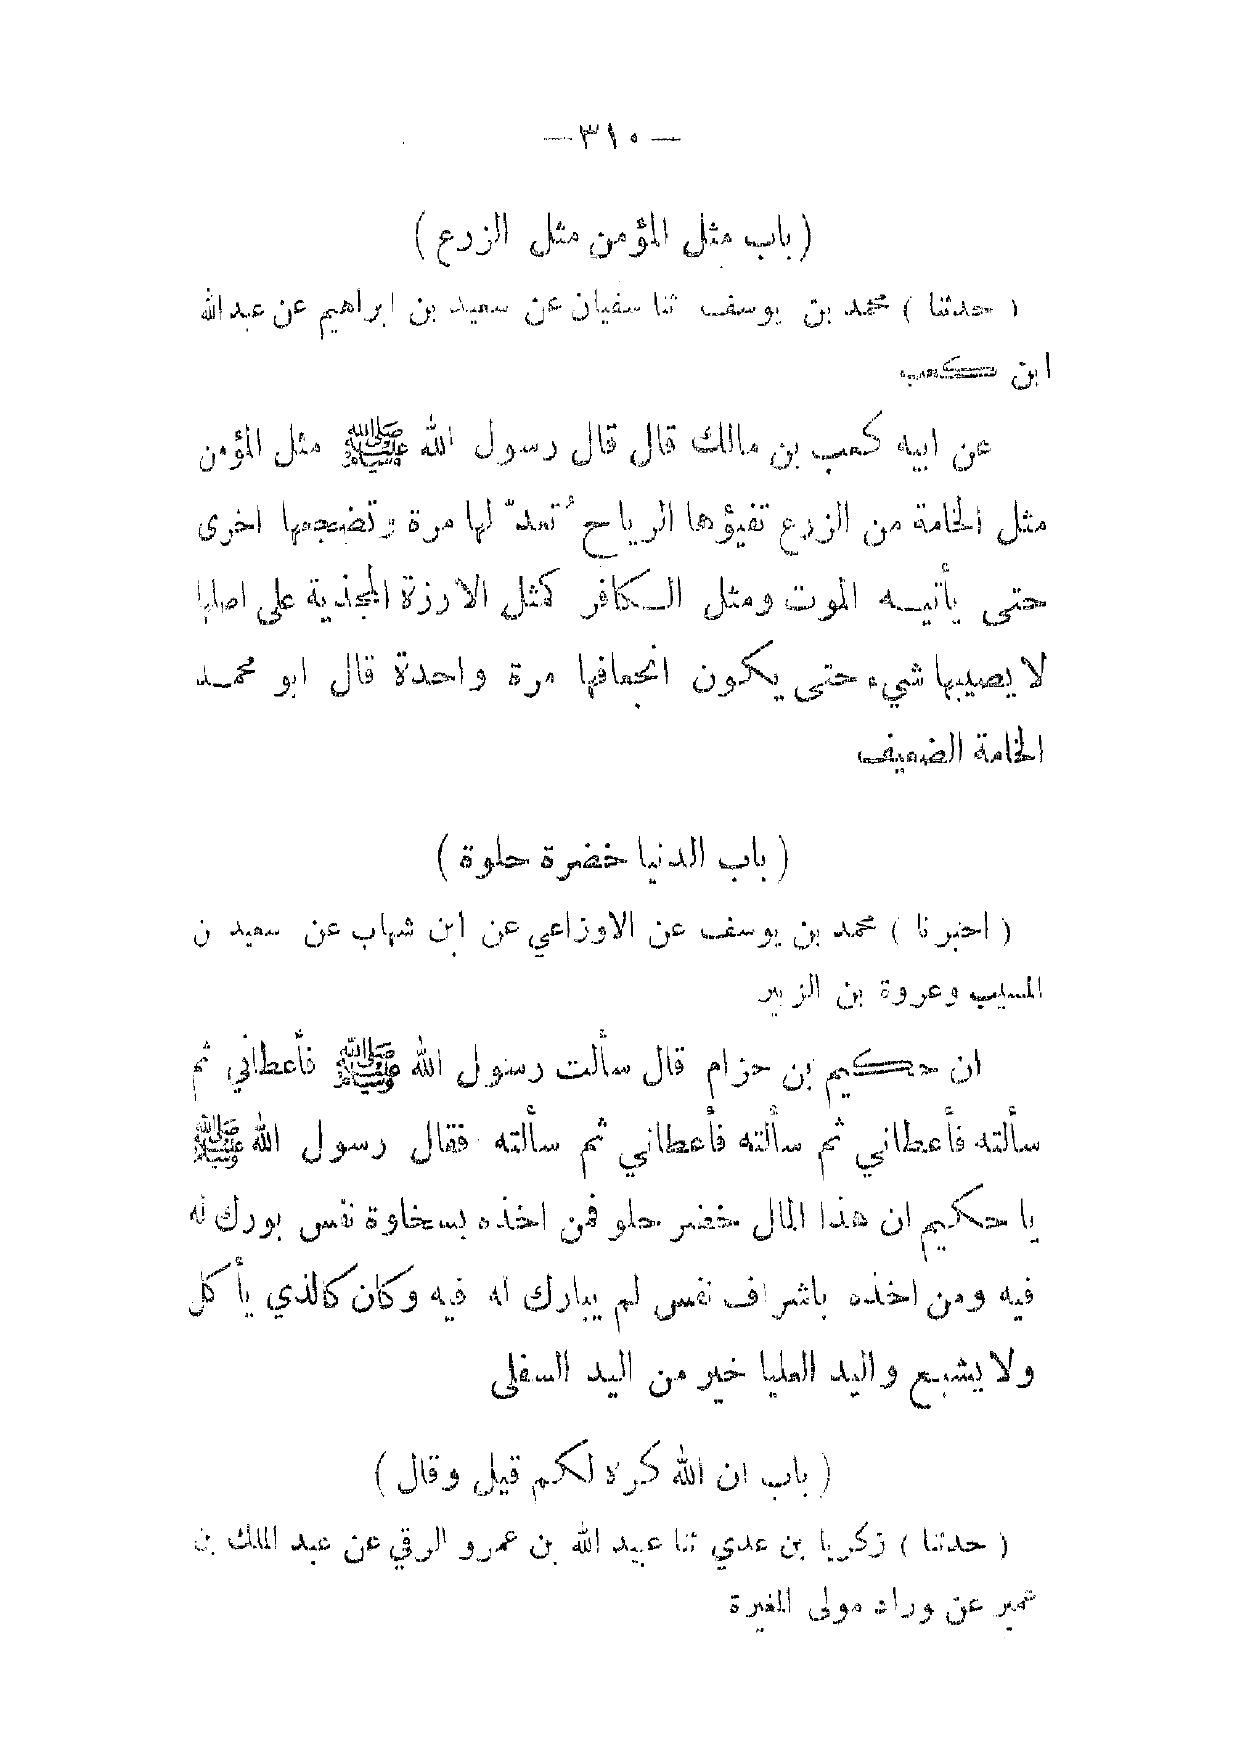 —٣١٠—
( باب مثل المؤمن مثل الزرع )
( حدثنا ) محمد بن يوسف ثنا سفيان عن سعيد بن ابراهيم عن عبد الله
ابن كعب
عن ابيه كعب بن مالك قال قال رسول الله ﷺ مثل المؤمن
مثل الخامة من الزرع تفيؤها الرياح ُتعدّ لها مرة وتضجعها اخرى
حتى يأتيه الموت ومثل الكافر كمثل الارزة المجذية على اصلها
لا يصيبها شيء حتى يكون انجعافها مرة واحدة قال ابو محمد
الخامة الضعيف
( باب الدنيا خضرة حلوة )
( اخبرنا ) محمد بن يوسف عن الاوزاعي عن ابن شهاب عن سعيد بن
المسيب وعروة بن الزبير
ان حكيم بن حزام قال سألت رسول الله ﷺ فأعطاني ثم
سألته فأعطاني ثم سألته فأعطاني ثم سألته فقال رسول الله ﷺ
يا حكيم ان هذا المال خضر حلو فمن اخذه بسخاوة نفس بورك له
فيه ومن اخذه باشراف نفس لم يبارك له فيه وكان كالذي يأكل
ولا يشبع واليد العليا خير من اليد السفلى
( باب ان الله كره لكم قيل وقال )
( حدثنا ) زكريا بن عدي ثنا عبيد الله بن عمرو الرقي عن عبد الملك بن
عمير عن وراد مولى المغيرة